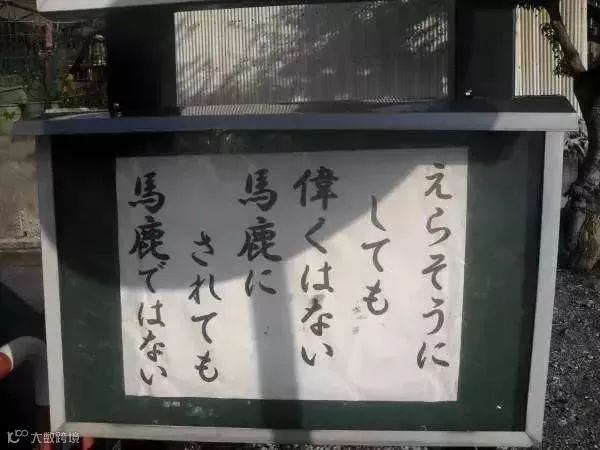 えらそうに
しても
偉くはない
馬鹿に
されても
馬鹿ではない
大数跨境